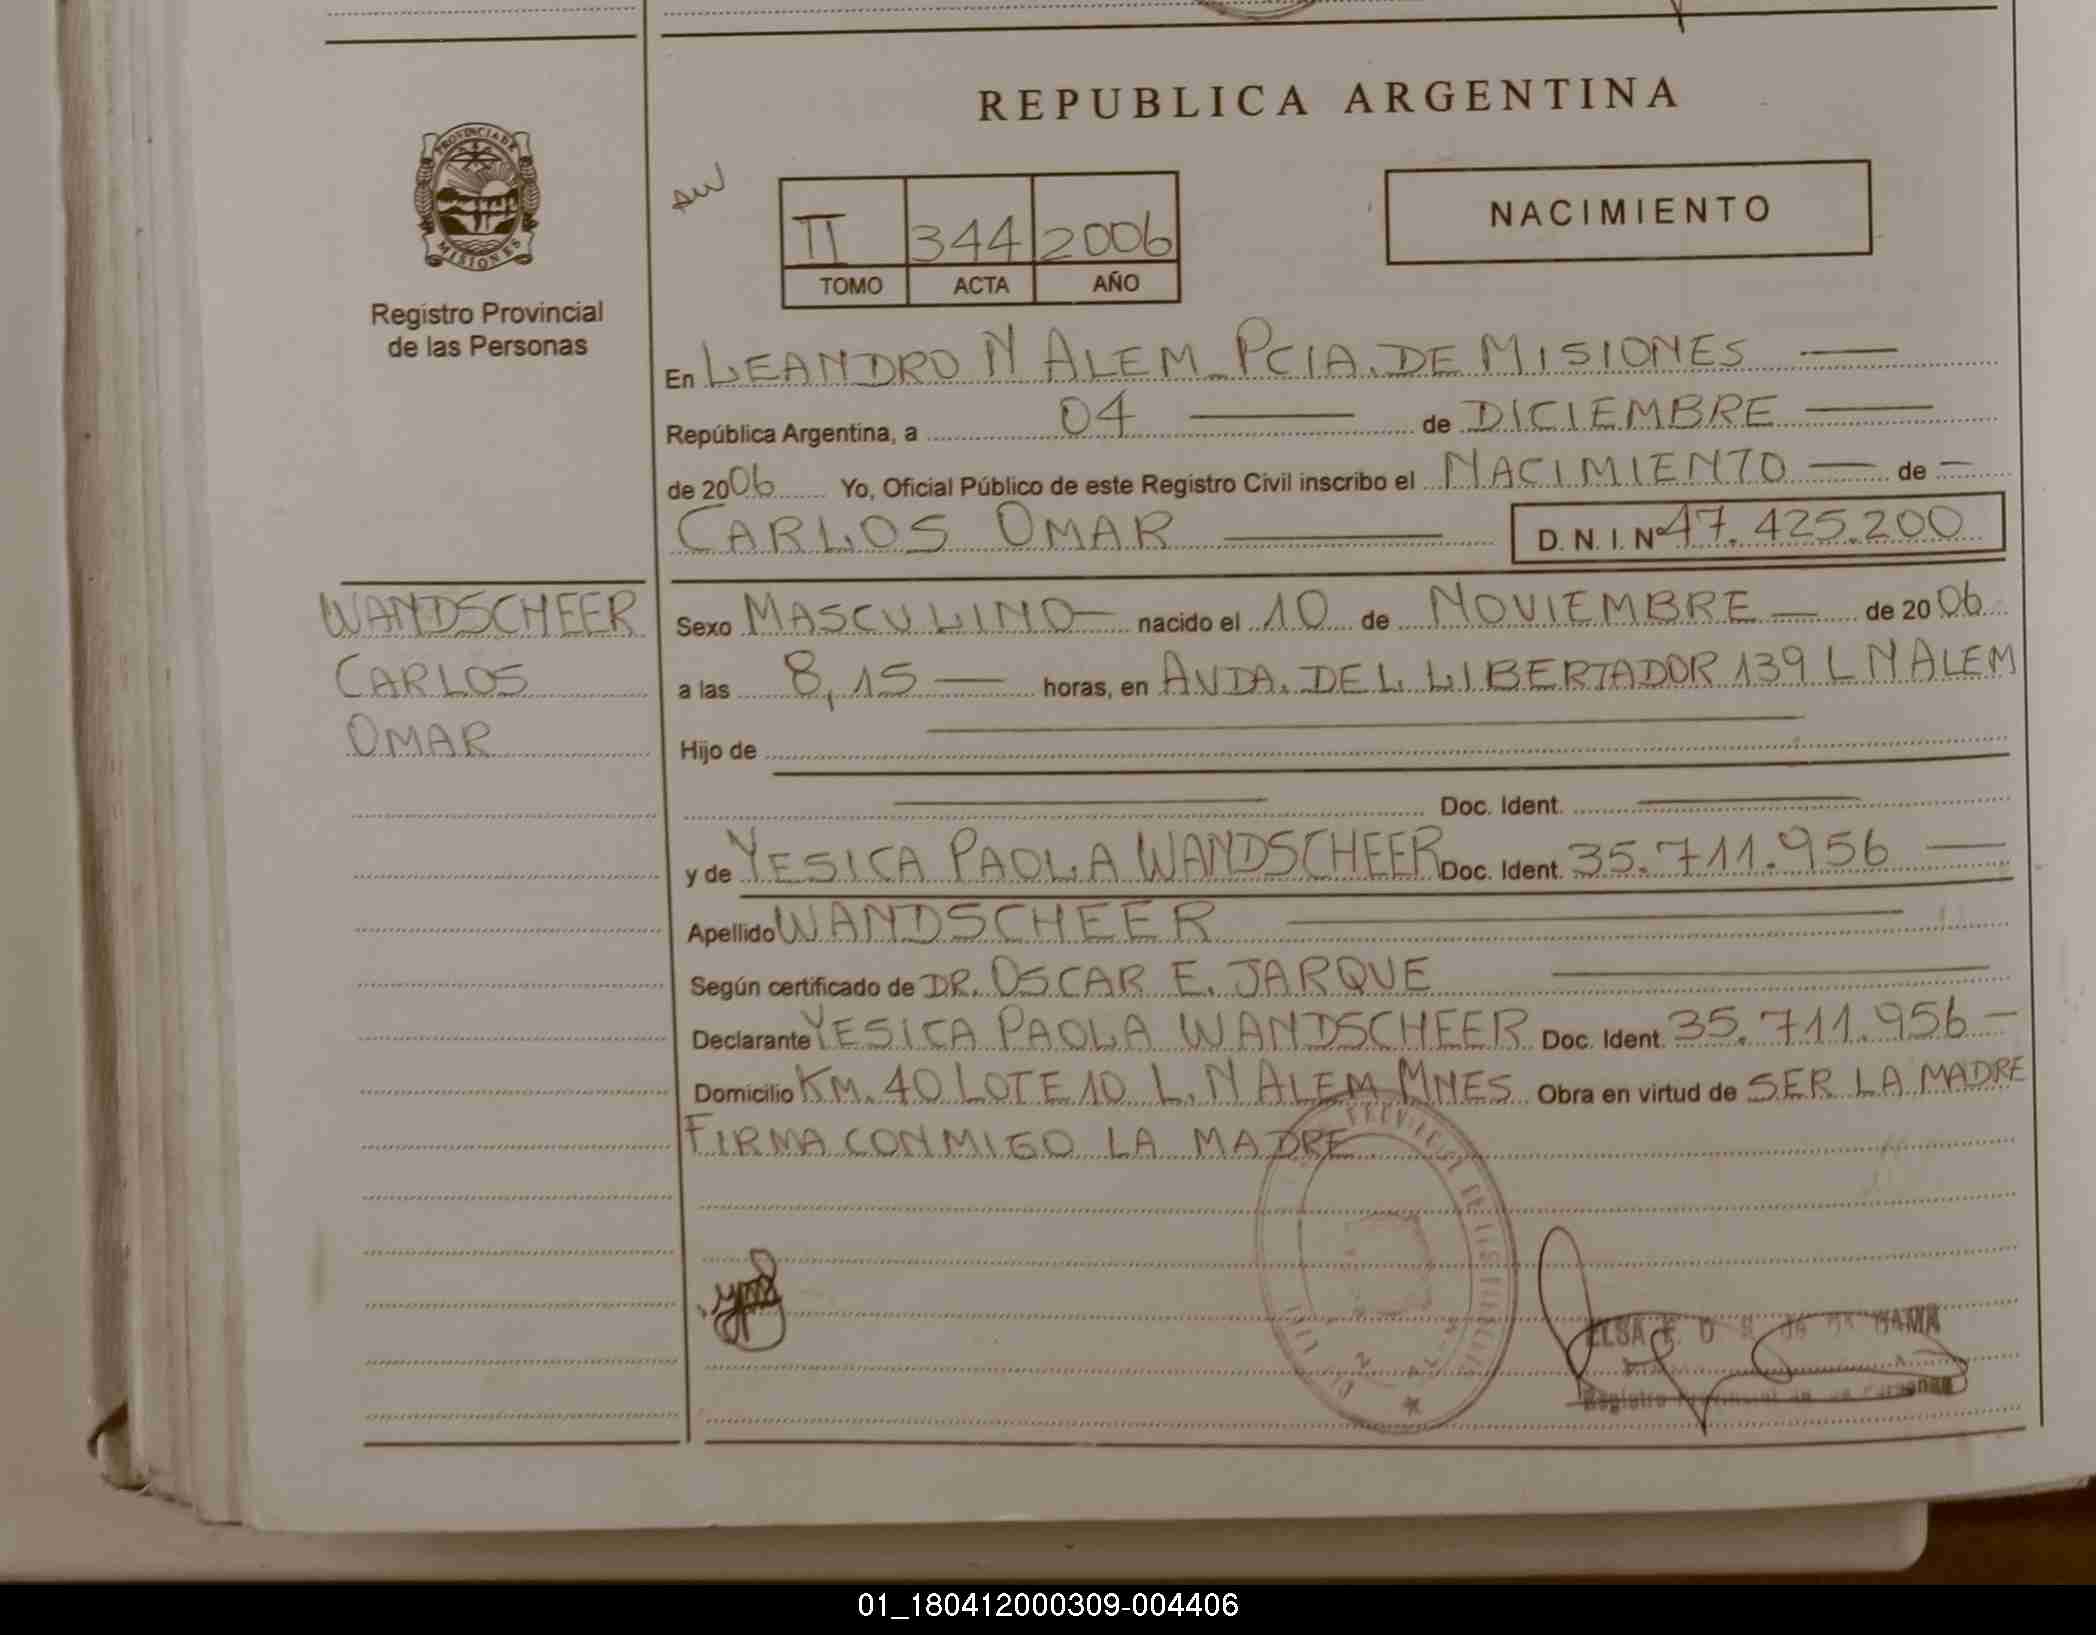 REPUBLICA ARGENTINA
PROVINCIA DE
MISIONES
Registro Provincial
de las Personas
AW
II 344 2006
TOMO ACTA AÑO
NACIMIENTO
En LEANDRO N ALEM PCIA. DE MISIONES
República Argentina, a 04 de DICIEMBRE
de 2006 Yo, Oficial Público de este Registro Civil inscribo el NACIMIENTO de
CARLOS OMAR D. N. I. Nº 47.425.200
WANDSCHEER
CARLOS
OMAR
Sexo MASCULINO nacido el 10 de NOVIEMBRE de 2006
a las 8,15 horas, en AVDA. DEL LIBERTADOR 139 L N ALEM
Hijo de
Doc. Ident.
y de YESICA PAOLA WANDSCHEER Doc. Ident. 35.711.956
Apellido WANDSCHEER
Según certificado de DR. OSCAR E. JARQUE
Declarante YESICA PAOLA WANDSCHEER Doc. Ident. 35.711.956
Domicilio KM. 40 LOTE 10 L. N ALEM MNES Obra en virtud de SER LA MADRE
FIRMA CONMIGO LA MADRE
ELSA
Registro Provincial de las Personas
01_180412000309-004406